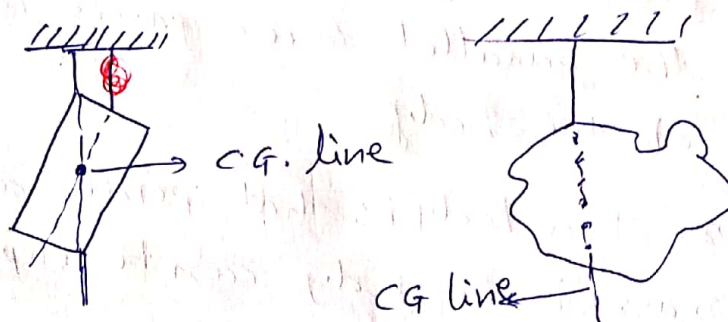 CG. line
CG line